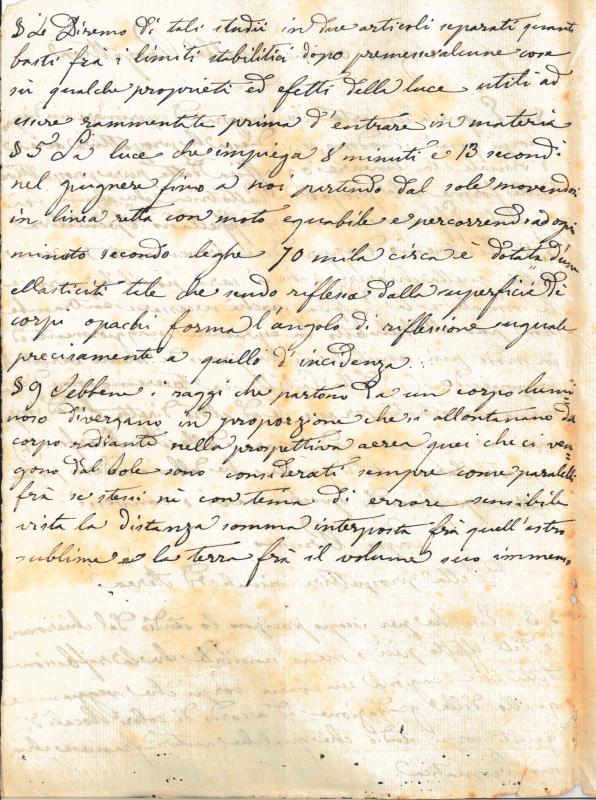 § 4 Diremo di tali studii in due articoli separati quanti
basti frà i limiti stabilitici dopo premesse alcune cose
sù qualche proprietà ed efetti della luce utili ad
essere rammentate prima d'entrare in materia
§ 5 La luce che impiega 8 minuti e 13 secondi
nel giugnere fino a noi partendo dal sole movendosi
in linea retta con moto equabile e percorrendo ad ogni
minuto secondo leghe 70 mila circa è dotata d'una
ellasticità tale che sendo riflessa dalla superficie di
corpi opachi forma l'angolo di riflessione uguale
precisamente a quello d'incidenza
§ 9 Sebbene i raggi che partono da un corpo lumi=
noso divergano in proporzione che si allontanano dal
corpo radiante nella prospettiva aerea quei che ci ven=
gono dal sole sono considerati sempre come paralelli
frà se stessi nè con tema di errore sensibile
vista la distanza somma interposta frà quell'astro
sublime e la terra frà il volume suo immenso